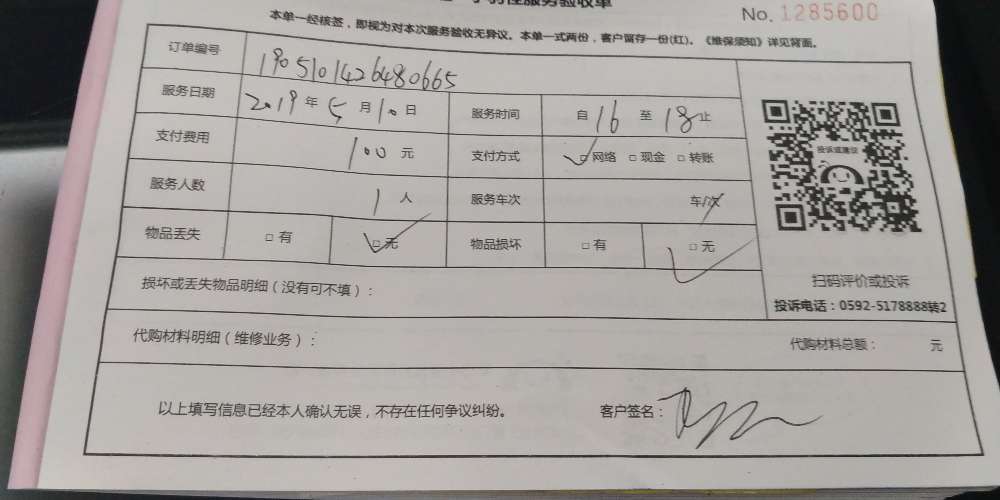 性服务验收单
No. 1285600
本单一经核签，即视为对本次服务验收无异议。本单一式两份，客户留存一份(红)。《维保须知》详见背面。
订单编号 1905101426480665
服务日期 2019 年 5 月 10 日 服务时间 自 16 至 18 止
支付费用 100 元 支付方式 □网络 □现金 □转账
服务人数 1 人 服务车次 车/次
物品丢失 □有 □无 物品损坏 □有 □无
投诉或建议
扫码评价或投诉
投诉电话：0592-5178888转2
损坏或丢失物品明细（没有可不填）：
代购材料明细（维修业务）： 代购材料总额： 元
以上填写信息已经本人确认无误，不存在任何争议纠纷。 客户签名：